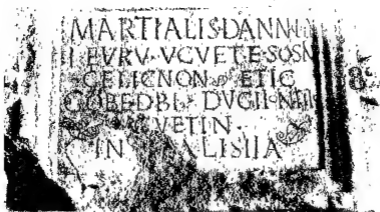 MARTIALIS·DANN
IEVRV·VCVETE·SOSIN
CELICNON ETIC
GOBEDBI DVGIIONTI
VETIN
IN ALISIIA